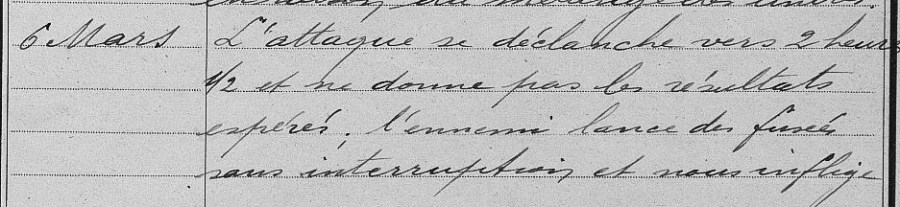 du mélange des unités.
6 Mars L'attaque se déclanche vers 2 heures
1/2 et ne donne pas les résultats
espérés, l'ennemi lance des fusées
sans interruption et nous inflige